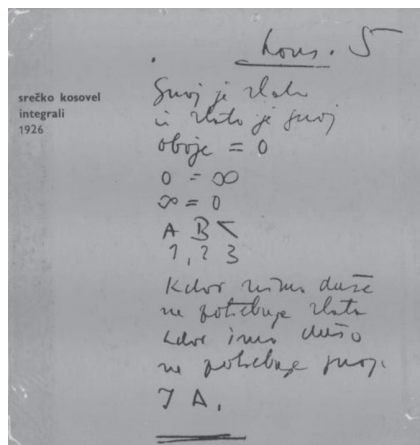 Kons. 5
srečko kosovel
integrali
1926
Gnoj je zlato
in zlato je gnoj
oboje = 0
0 = ∞
∞ = 0
A B <
1, 2 3
Kdor nima duše
ne potrebuje zlata
kdor ima dušo
ne potrebuje gnoja.
I A.